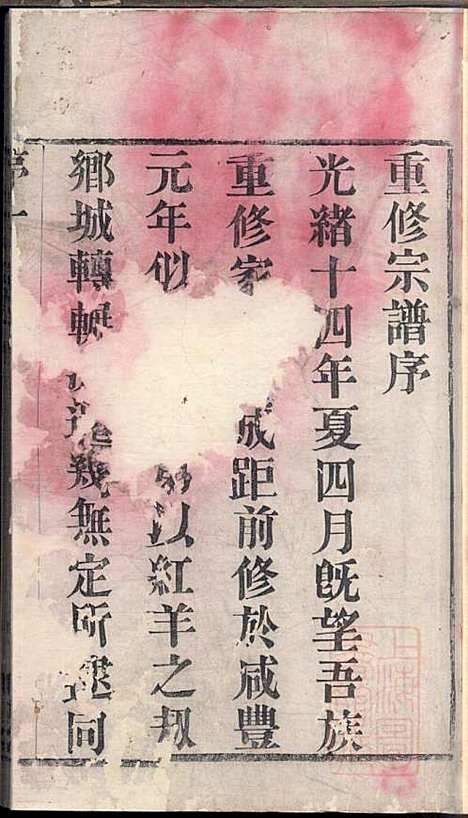 重修宗譜序
光緒十四年夏四月旣望吾族
重修家成距前修於咸豐
元年以紅羊之刼
鄉城轉幾無定所逮同
序一